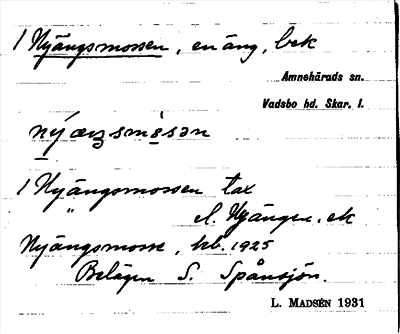 / Nyängsmossen, en äng, bek
Amnehärads sn.
Vadsbo hd. Skar. l.
nẏ́æŋsmòsən
/ Nyängsmossen tax
" el. Nyängen, ek
Nyängsmosse, kb. 1925
Belägen S. Spånsjön.
L. MADSÉN 1931